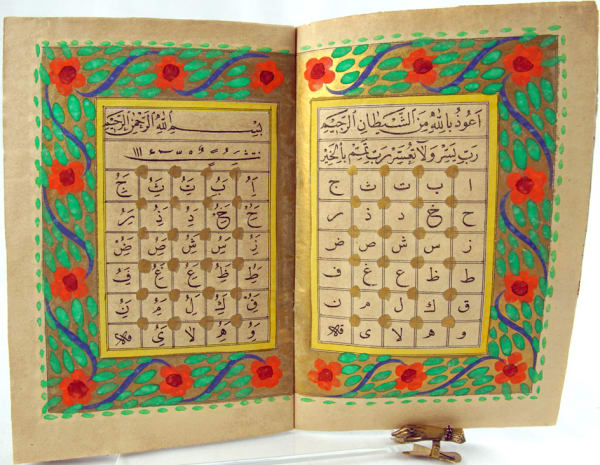 اعوذ بالله من الشيطان الرجيم
رب يسر ولا تعسر رب تمم بالخير
ا ب ت ث ج
ح خ د ذ ر
ز س ش ص ض
ط ظ ع غ ف
ق ك ل م ن
و ه لا ى
بسم الله الرحمن الرحيم
ا ب ت ث ج
ح خ د ذ ر
ز س ش ص ض
ط ظ ع غ ف
ق ك ل م ن
و ه لا ى